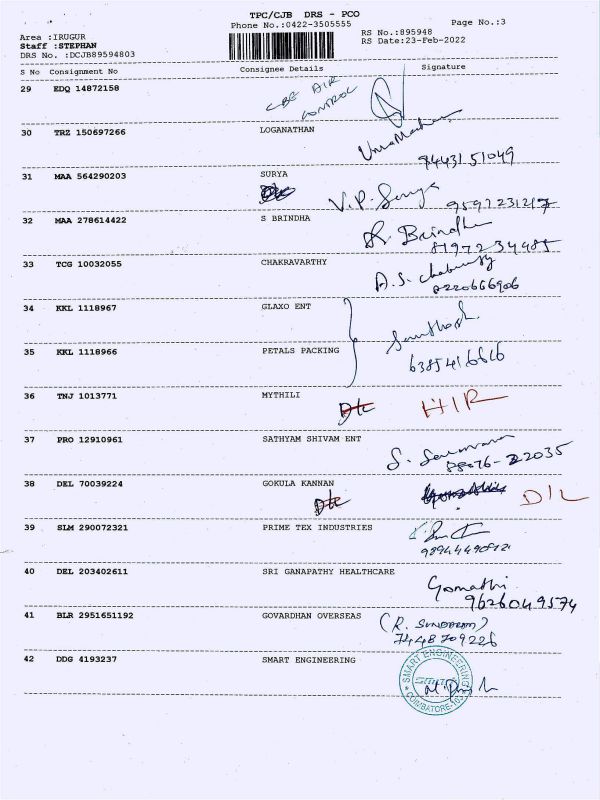 TPC/CJB DRS - PCO
Phone No.:0422-3505555 Page No.:3
Area :IRUGUR RS No.:895948
Staff :STEPHAN RS Date:23-Feb-2022
DRS No. :DCJB89594803
S No Consignment No Consignee Details Signature
29 EDQ 14872158 CBE AIR CONTROL
30 TRZ 150697266 LOGANATHAN
94431 51049
31 MAA 564290203 SURYA V.P. Surya
32 MAA 278614422 S BRINDHA Brindha
33 TCG 10032055 CHAKRAVARTHY A.S.
8220666906
34 KKL 1118967 GLAXO ENT Santhosh
35 KKL 1118966 PETALS PACKING 6385416616
36 TNJ 1013771 MYTHILI D/c H/R
37 PRO 12910961 SATHYAM SHIVAM ENT S.
38 DEL 70039224 GOKULA KANNAN D/c D/L
39 SLM 290072321 PRIME TEX INDUSTRIES
40 DEL 203402611 SRI GANAPATHY HEALTHCARE Gomathi
9626049574
41 BLR 2951651192 GOVARDHAN OVERSEAS (R. SUNDARAM)
7448709226
42 DDG 4193237 SMART ENGINEERING SMART ENGINEERING COIMBATORE